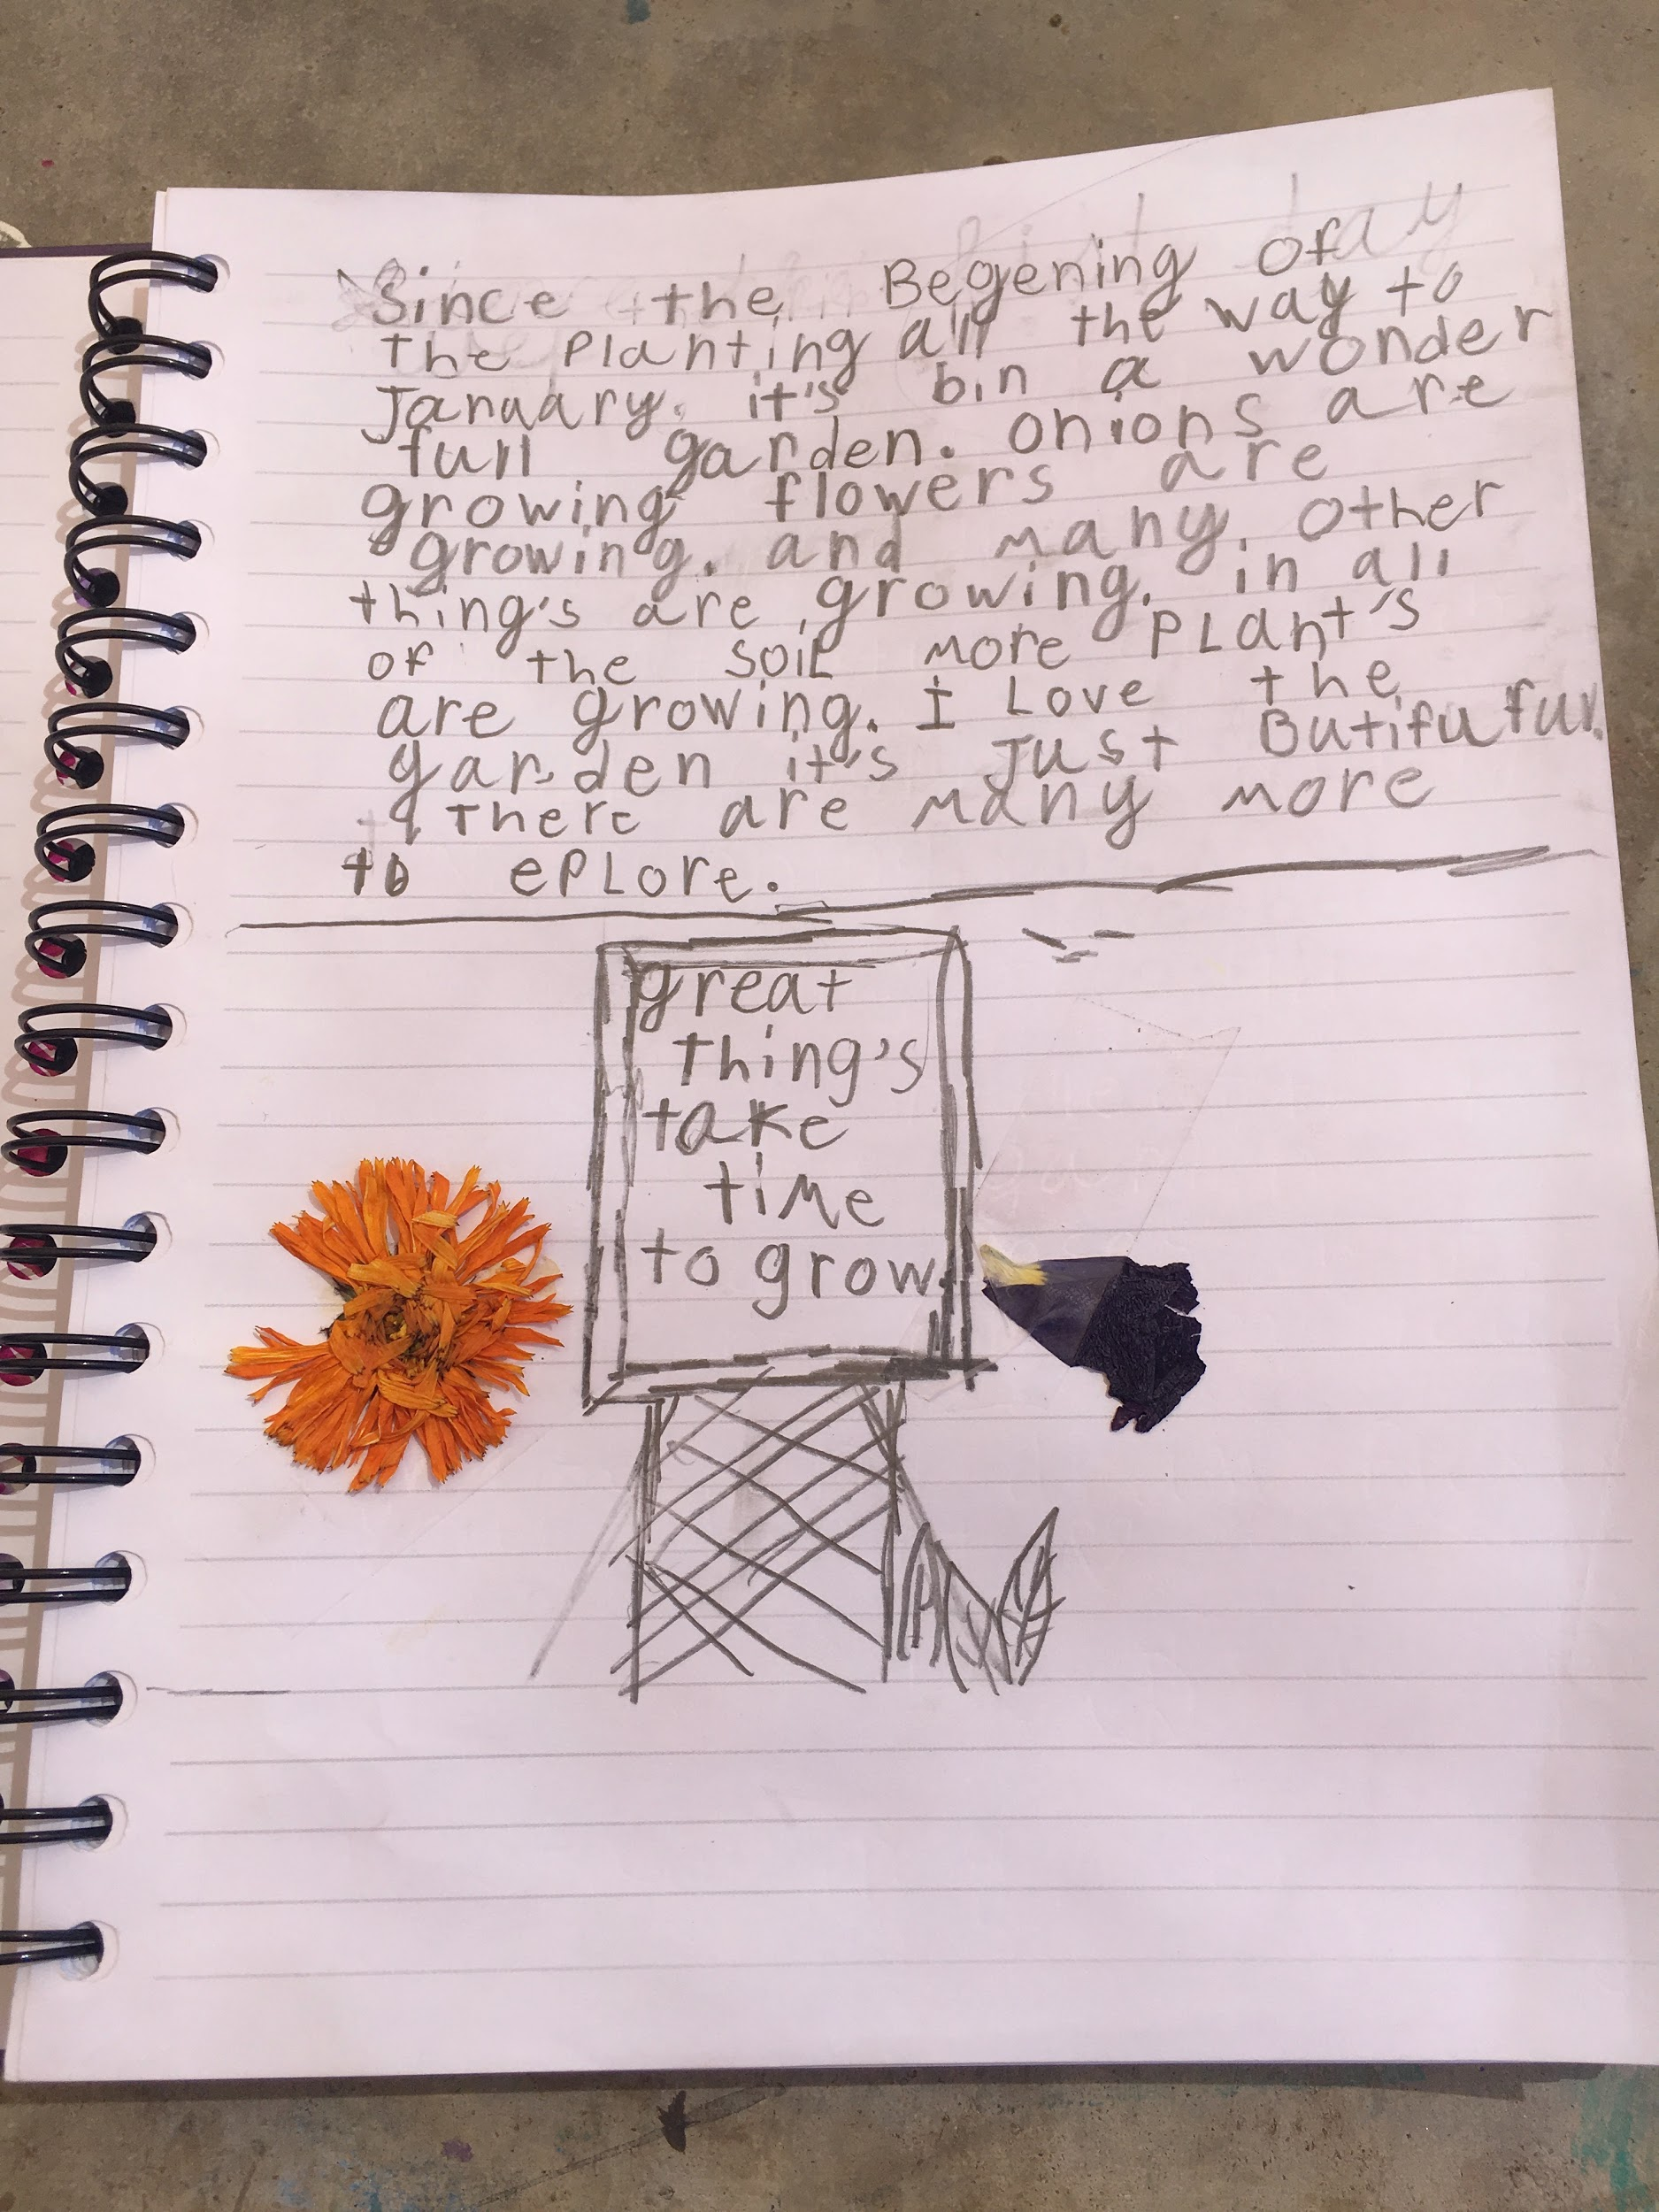 Since the Begening of
the Planting all the way to
January. it's bin a wonder
full garden. Onions are
growing flowers are
growing. and many. other
thing's are growing. in all
of the soil more PLant's
are growing. I Love the
garden it's Just Butifuful.
there are many more
to ePLore.
great
thing's
take
time
to grow.